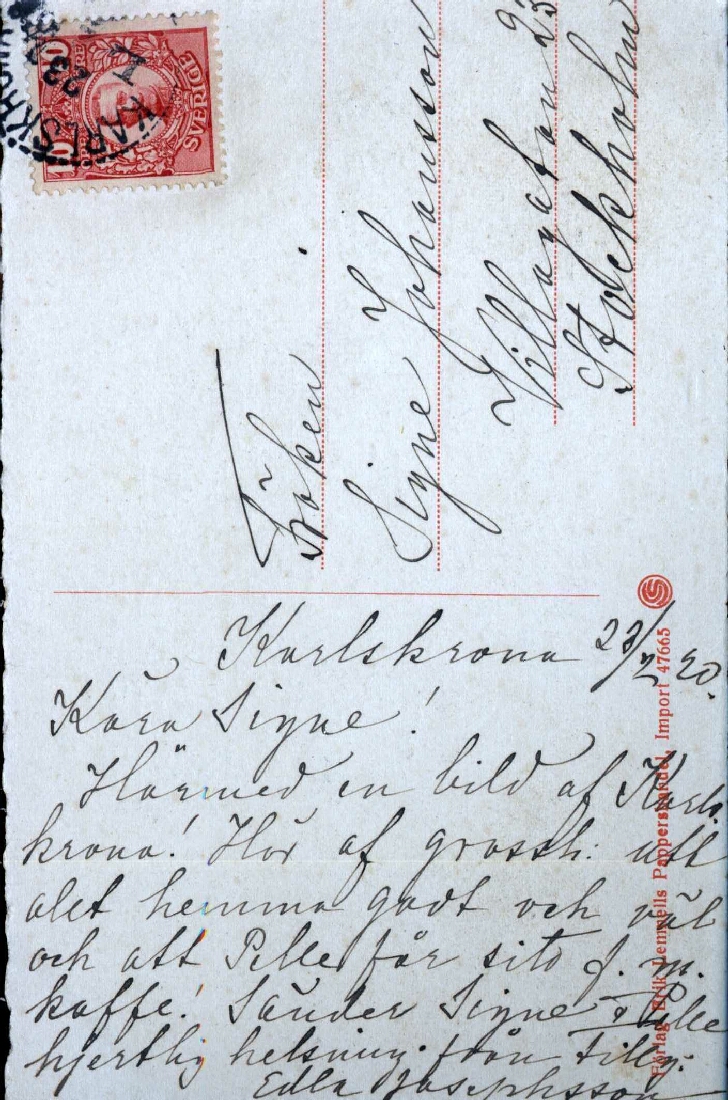 10 10
ÖRE
SVERIGE
KARLSKRONA
1
23
Fröken
Signe Johansson
Villagatan 23
Stockholm
Karlskrona 23/2 20.
Kära Signe!
Härmed en bild af Karls-
krona! Hör af grossh: att
det hemma godt och väl
och att Pelle får sitt f. m.
kaffe! Sänder Signe & Pelle
hjertlig helsning från
Edla Josephsson
Förlag Erik Zemzells Pappershandel, Import 47665